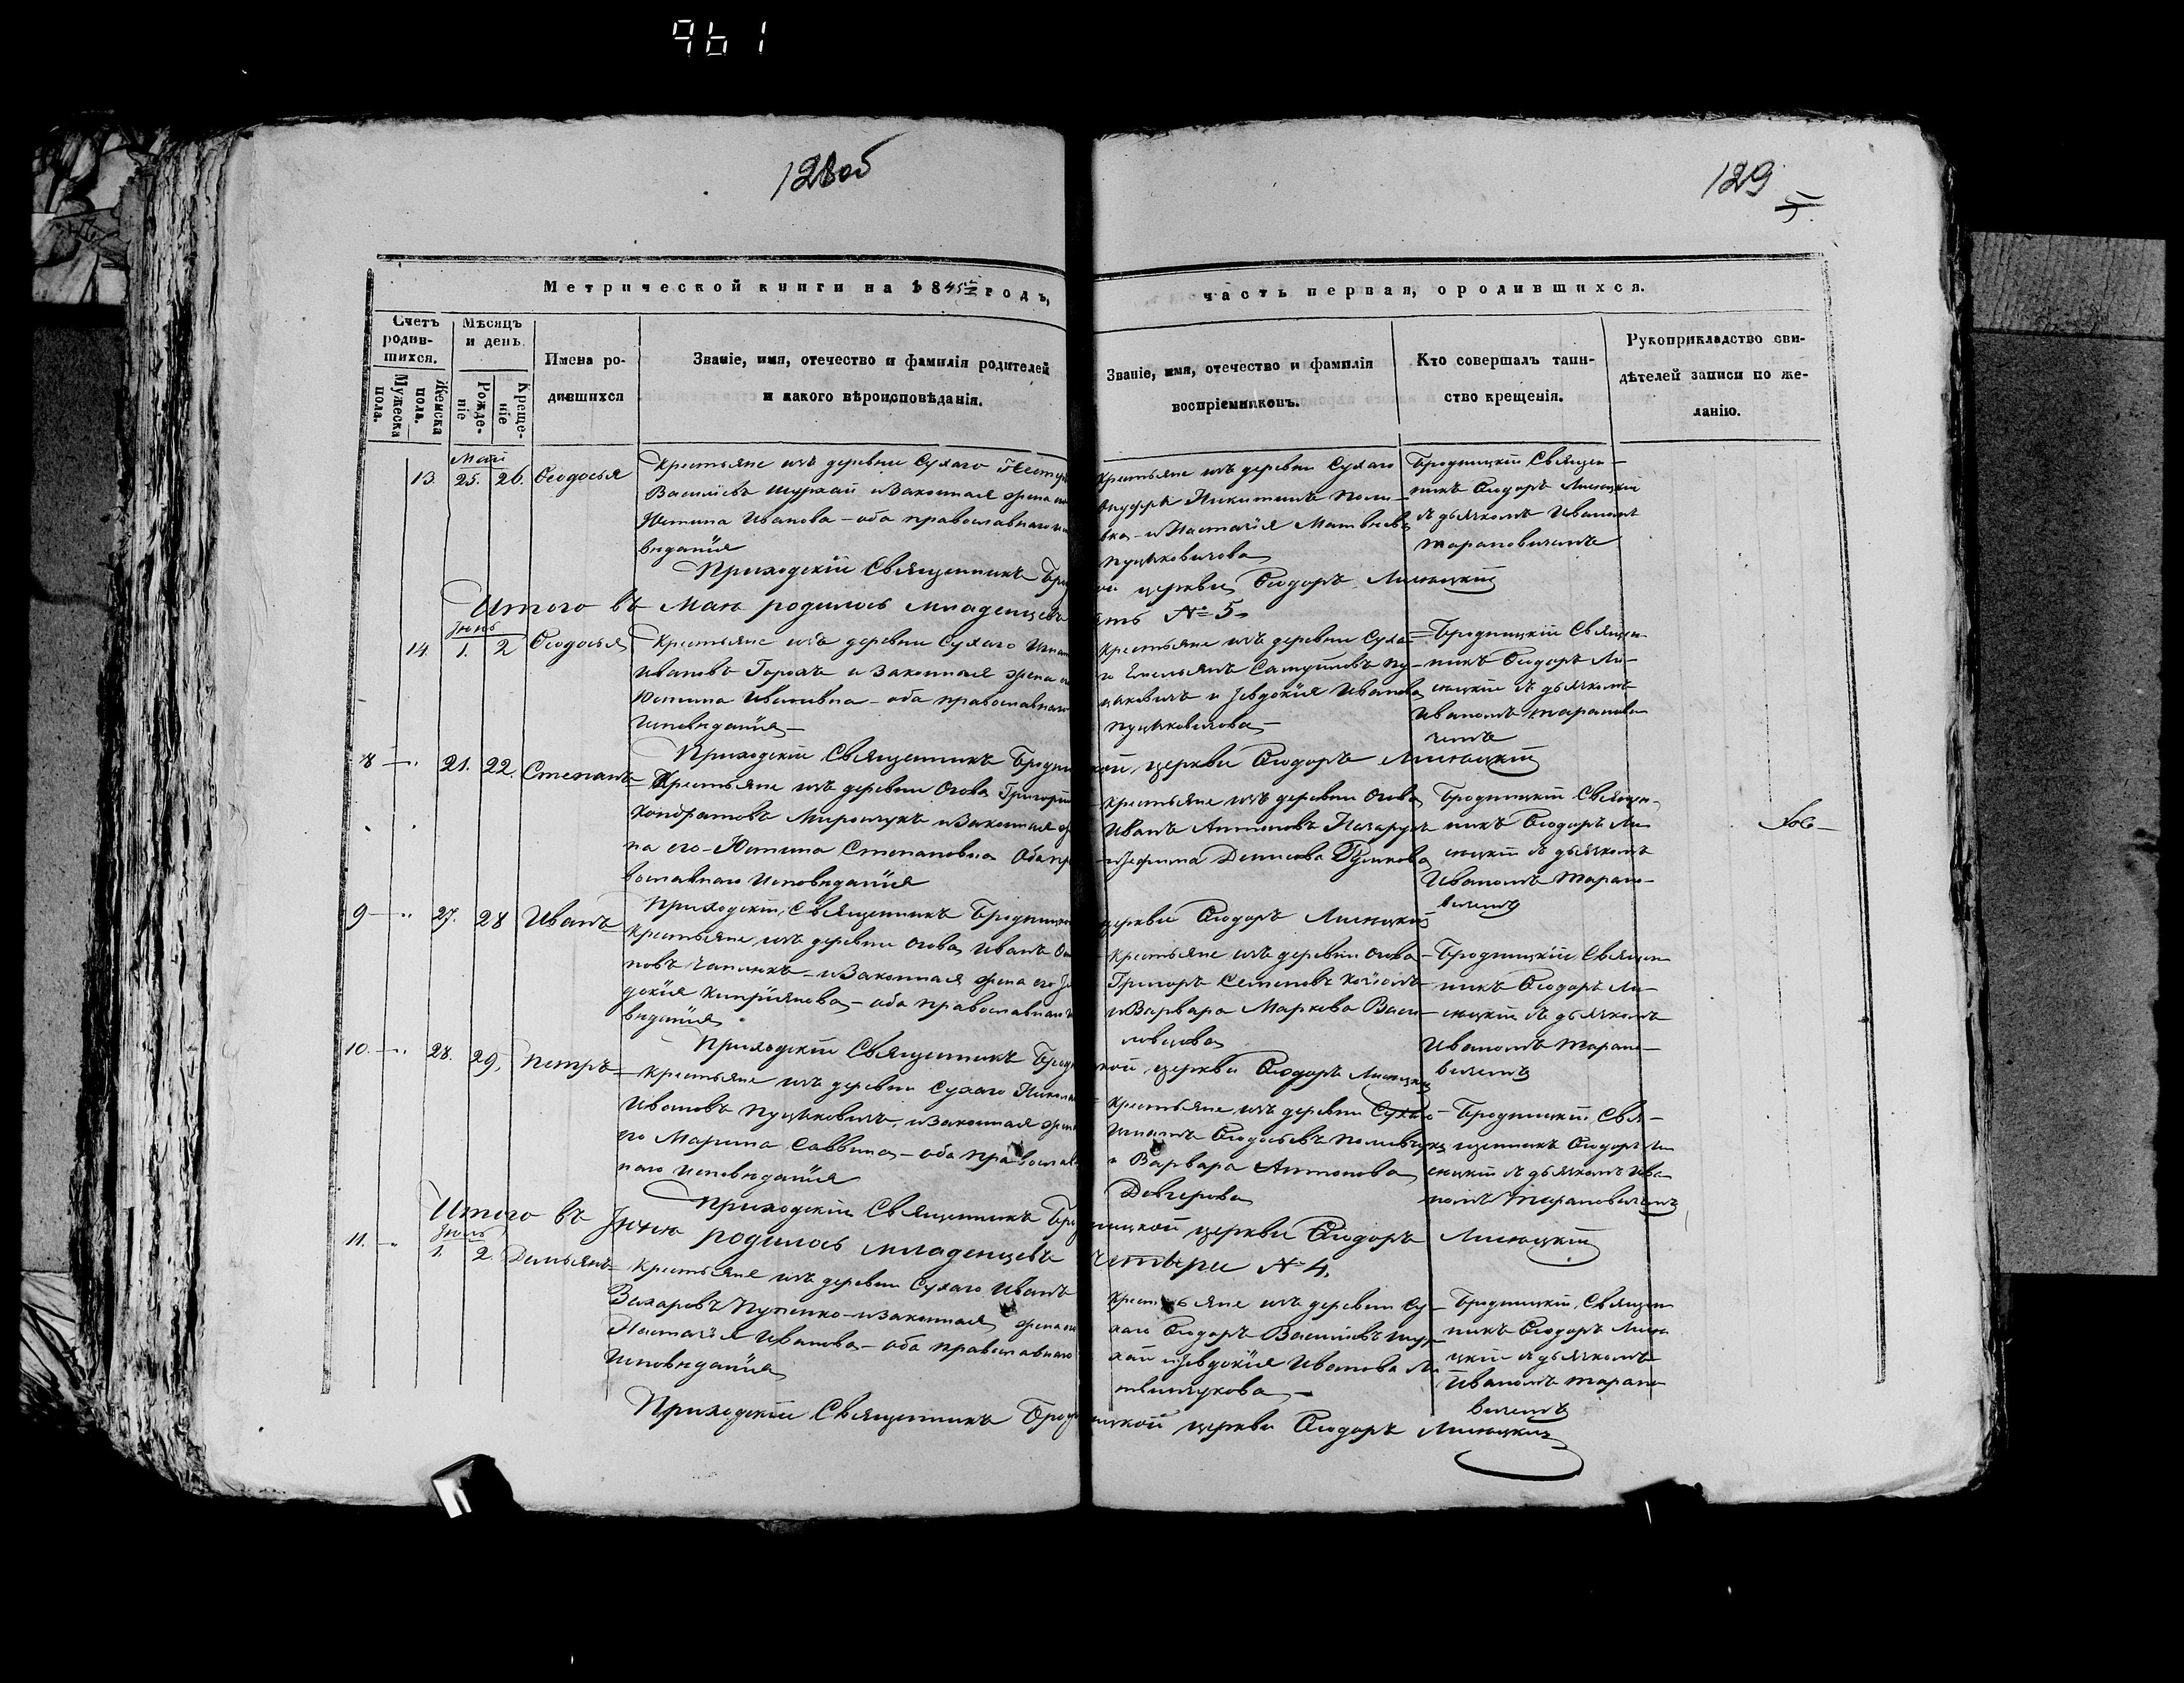 961
128об
129
Метрической книги на 1845й годъ,
часть первая, ородившихся.
Счетъ родив-шихся.
Мужеска пола.
Женска пола.
Мѣсяцъ и день
Рожде-ніе
Креще-ніе
Имена ро-
дившихся
Званіе, имя, отечество и фамилія родителей
и какого вѣроисповѣданія.
Званіе, имя, отечество и фамилія
воспріемниковъ.
Кто совершалъ таин-
ство крещенія.
Рукоприкладство сви-
дѣтелей записи по же-
ланію.
Май
13. 25. 26. Ѳеодосья
Крестьяне изъ деревни Сухаго
Василіевъ Шуркай и Законная жена
Юстина Иванова - оба православнаго
вѣданія
Крестьяне изъ деревни Сухаго
Никитинъ Поли-
вка - и Настасія Матвѣева
Пуцыковичова
Бродницкій Священ-
никъ Ѳеодоръ Лисецкій
съ дьячкомъ Иваномъ
Тарановичемъ
Приходскій Священникъ Бро
ой церкви Ѳеодоръ Лисецкій
Итого въ Маѣ родилось младенцевъ
ять № 5
Іюнь
14. 1. 2 Ѳеодосья
Крестьяне изъ деревни Сухаго Игна
Ивановъ Горохъ и Законная жена е
Юстина Ивановна - оба православнаго
Исповѣданія -
Крестьяне изъ деревни Суха-
го Емельянъ Самуйловъ Пу-
цыковичъ и Іевдокія Иванова
Пуцыковичова -
Бродницкій Священ-
никъ Ѳеодоръ Ли-
сецкій съ дьячкомъ
Иваномъ Таранови-
чемъ
Приходскій Священникъ Бродни
кой церкви Ѳеодоръ Лисецкій
8 - 21. 22. Степанъ
Крестьяне изъ деревни Огова Григорій
Кондратовъ Мирончукъ и Законная же
на его - Юстина Степановна Оба пр
вославнаго Исповѣданія
Крестьяне изъ деревни Огова
Иванъ Антоновъ
и Іефима Денисова
Бродницкій Священ-
никъ Ѳеодоръ Ли-
сецкій съ дьячкомъ
Иваномъ Тарано-
вичемъ
Приходскій Священникъ Бродницко
церкви Ѳеодоръ Лисецкій
9 - 27. 28 Иванъ
Крестьяне изъ деревни Огова Иванъ
новъ Чапликъ - и Законная жена его Іе
докія Кипріянова - оба православнаго
вѣданія
Крестьяне изъ деревни Огова
Григоръ Семеновъ
и Варвара Маркова Васи-
левцова
Бродницкій Священ
никъ Ѳеодоръ Ли-
сецкій съ дьячкомъ
Иваномъ Тарано-
вичемъ
Приходскій Священникъ Брод
кой церкви Ѳеодоръ Лисецкій
10. - 28. 29. Петръ
Крестьяне изъ деревни Сухаго Никола
Ивановъ Пуцыковичъ - и Законная жена
его Марина Саввина - оба православ
наго исповѣданія
Крестьяне изъ деревни Сухаго
Игнатъ Ѳеодосьевъ
и Варвара Антонова
Довгерова
Бродницкій Свя-
щенникъ Ѳеодоръ Ли
сецкій съ дьячкомъ Ива
номъ Тарановичемъ
Приходскій Священникъ Бро
ницкой церкви Ѳеодоръ Лисецкій
Итого въ Іюнѣ родилось младенцевъ
четыре № 4.
Іюль
11. - 1. 2. Демьянъ
Крестьяне изъ деревни Сухаго Иванъ
Захаровъ Пупенко - и законная жена
Настасія Иванова - оба православнаго
Исповѣданія
Крестьяне изъ деревни Су-
хаго Ѳеодоръ Василіевъ Шур-
кай и Іевдокія Иванова Ли
твинчукова -
Бродницкій Священ
никъ Ѳеодоръ Лисе
цкій съ дьячкомъ
Иваномъ Тарано
вичемъ
Приходскій Священникъ Брод
ницкой церкви Ѳеодоръ Лисецкій